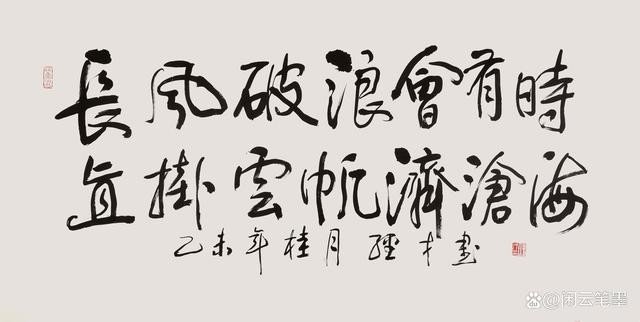 長風破浪會有時
直掛雲帆濟滄海
乙未年桂月經才書
闲云笔墨